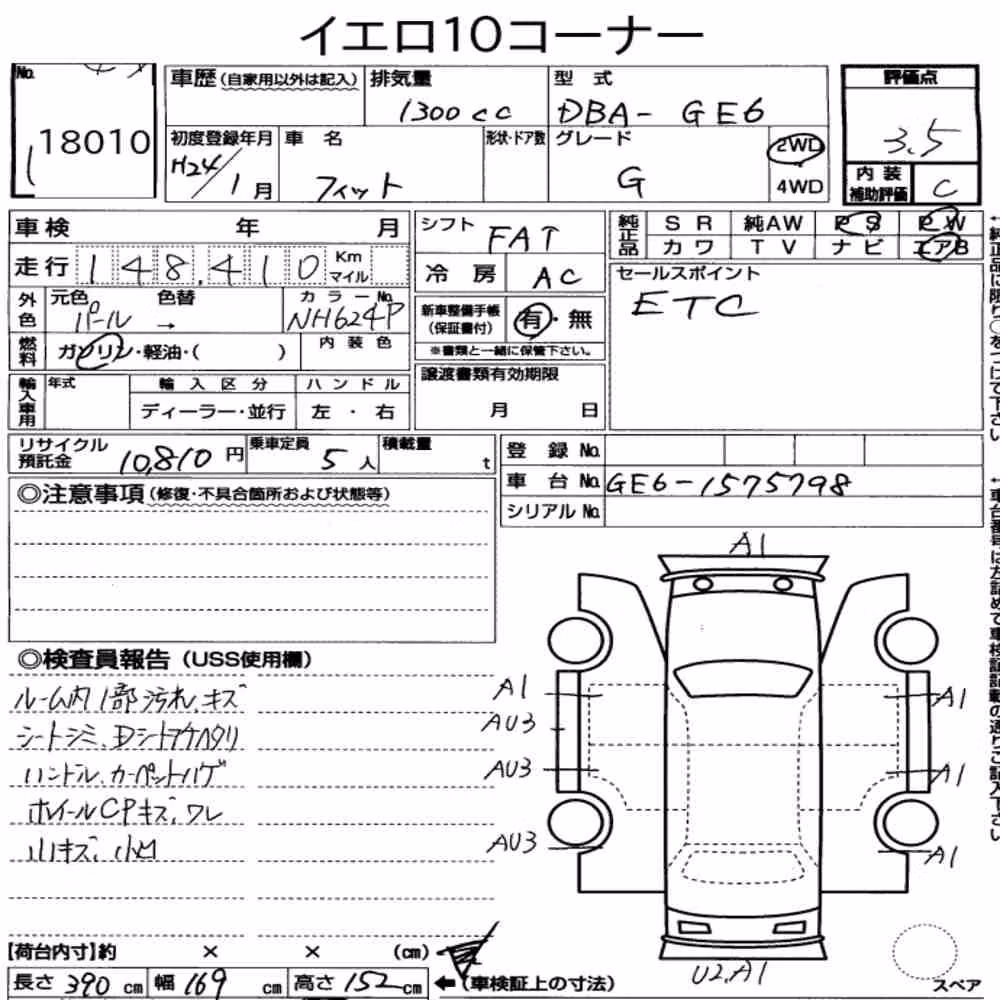 イエロ10コーナー
No.
18010
車歴 (自家用以外は記入)
排気量
1300cc
型式
DBA- GE6
評価点
3.5
初度登録年月
H24/1月
車名
フィット
形状・ドア数
グレード
G
2WD
4WD
内装
補助評価
C
車検 年 月
シフト
FAT
純正品
SR 純AW PS PW
カワ TV ナビ エアB
走行 148,410 Km
マイル
冷房 AC
セールスポイント
ETC
外色
元色 色替 カラーNo.
パール → NH624P
新車整備手帳
(保証書付)
有・無
※書類と一緒に保管下さい。
燃料
ガソリン・軽油・( )
内装色
輸入車用
年式 輸入区分 ハンドル
ディーラー・並行 左・右
譲渡書類有効期限
月 日
リサイクル
預託金
10,810円
乗車定員
5人
積載量
t
登録No.
車台No. GE6-1575798
シリアルNo.
◎注意事項(修復・不具合箇所および状態等)
◎検査員報告(USS使用欄)
ルーム内1部汚れ、キズ
シートシミ、Dシートアナヘタリ
ハンドル、カーペットハゲ
ホイールCPキズ、ワレ
小キズ、小凹
A1
A1
A1
AU3
AU3
A1
AU3
A1
U2,A1
スペア
【荷台内寸】約 × × (cm)
長さ390cm 幅169cm 高さ152cm
(車検証上の寸法)
↑純正品に限り○をつけて下さい
↑車台番号は左詰めで車検証記載の通りご記入下さい